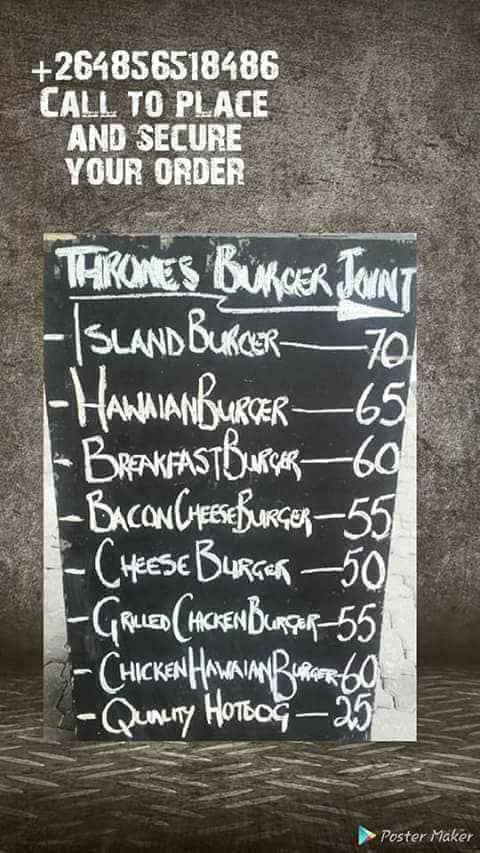 +264856518486
CALL TO PLACE
AND SECURE
YOUR ORDER
THRONE'S BURGER JOINT
- ISLAND BURGER — 70
- HAWAIAN BURGER — 65
- BREAKFAST BURGER — 60
- BACON CHEESE BURGER — 55
- CHEESE BURGER — 50
- GRILLED CHICKEN BURGER — 55
- CHICKEN HAWAIAN BURGER — 60
- QUALITY HOTDOG — 25
Poster Maker